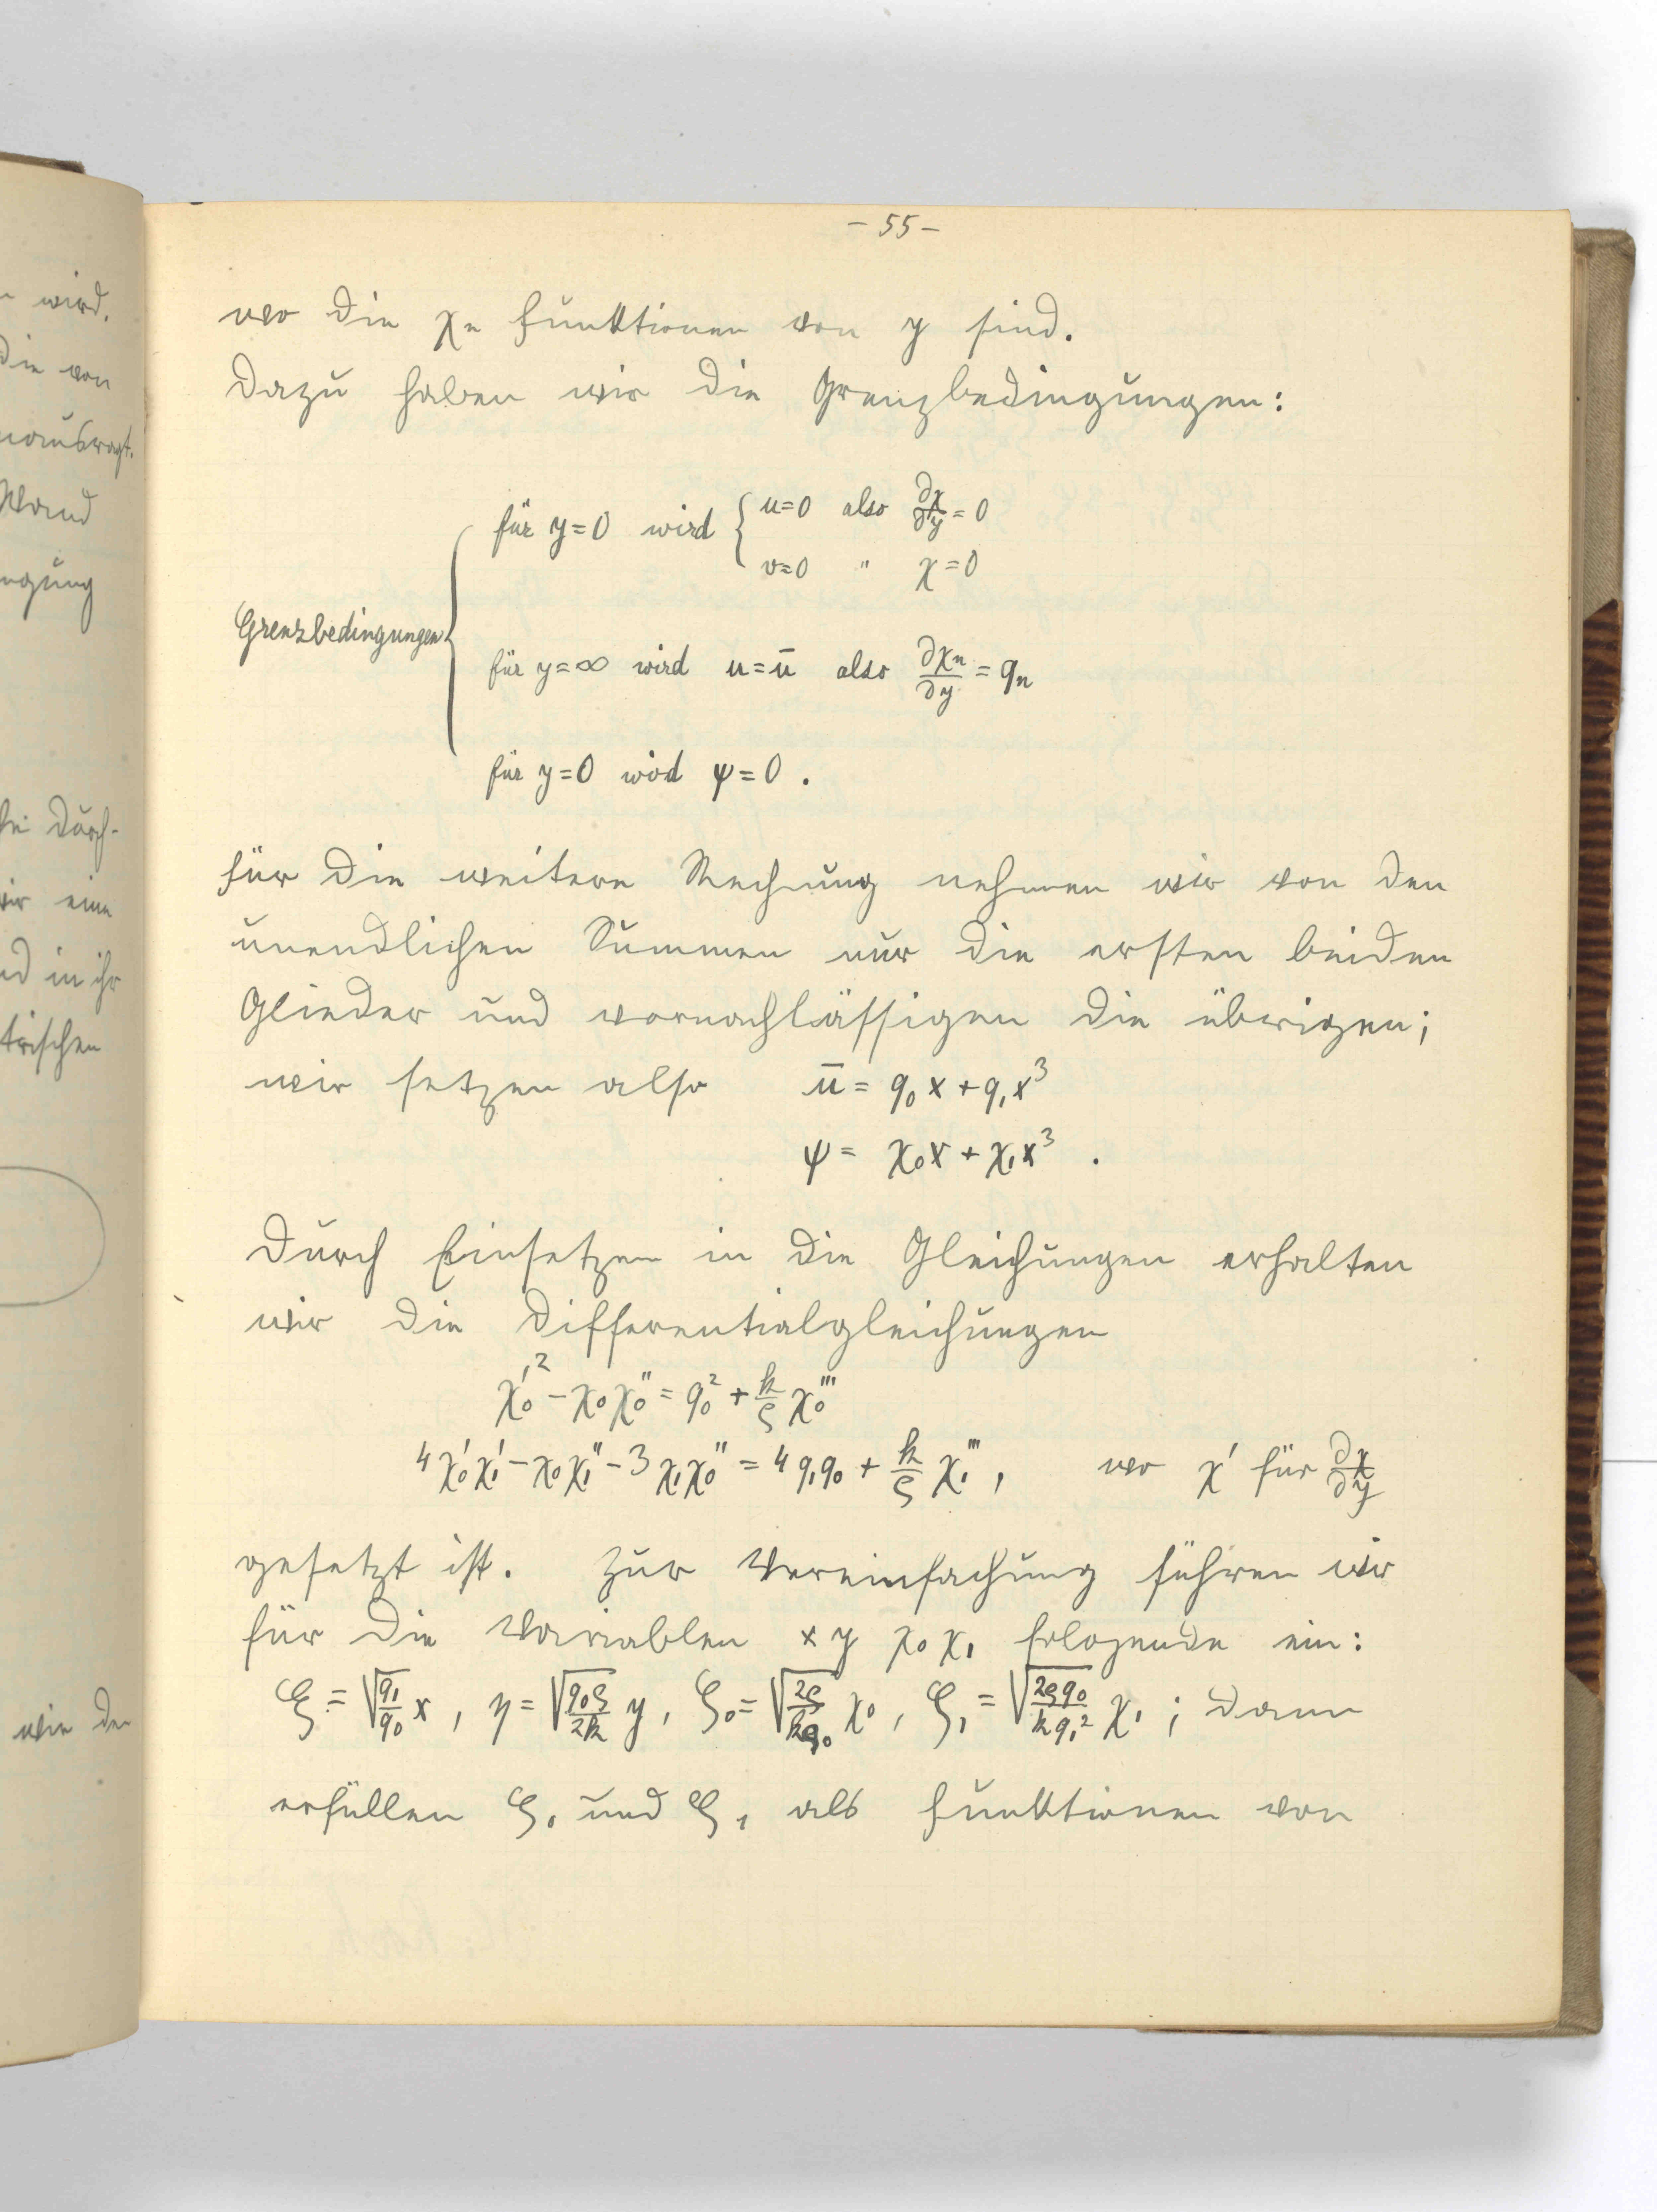 - 55 -
wird.
die von
Wand
wo die χn Funktionen von y sind.
Dazu haben wir die Grenzbedingungen:
für y=0 wird { u=0 also ∂χ/∂y = 0
v=0 " χ=0
Grenzbedingungen {
für y=∞ wird u=ū also ∂χn/∂y = qn
für y=0 wird ψ=0 .
für die weitere Rechnung nehmen wir von den
unendlichen Summen nur die ersten beiden
Glieder und vernachlässigen die übrigen;
wir setzen also ū = q₀x + q₁x³
ψ = χ₀x + χ₁x³ .
Durch Einsetzen in die Gleichungen erhalten
wir die Differentialgleichungen
χ₀'² - χ₀χ₀'' = q₀² + k/ϱ χ₀'''
4χ₀'χ₁' - χ₀χ₁'' - 3χ₁χ₀'' = 4q₁q₀ + k/ϱ χ₁''' , wo χ' für ∂χ/∂y
gesetzt ist. Zur Vereinfachung führen wir
für die Variablen x y χ₀ χ₁ folgende ein:
ξ = √(q₁/q₀) x , η = √(q₀ϱ/2k) y , ζ₀ = √(2ϱ/kq₀) χ₀ , ζ₁ = √(2ϱq₀/kq₁²) χ₁ ; dann
erfüllen ζ₀ und ζ₁ als Funktionen von